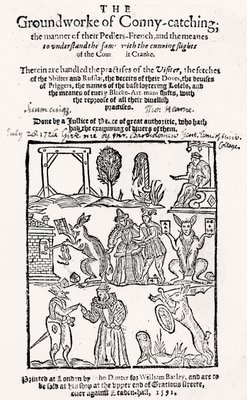 THE
Groundworke of Conny-catching;
the manner of their Pedlers-French, and the meanes
to vnderstand the same with the cunning slights
of the Counterfeit Cranke.
Therein are handled the practises of the Visiter, the fetches
of the Shifter and Rufflar, the deceits of their Doxes, the deuises
of Priggers, the names of the base loytering Losels, and
the meanes of euery Blacke-Art-mans shifts, with
the reproofe of all their diuellish
practises.
Tho: Hearne.
Done by a Justice of Peace of great authoritie, who hath
had the examining of diuers of them.
July 1720 Give me by Mr. Bartholomew
Printed at London by Iohn Danter for William Barley, and are to
be sold at his shop at the vpper end of Gratious streete,
ouer against Leaden-hall, 1592.